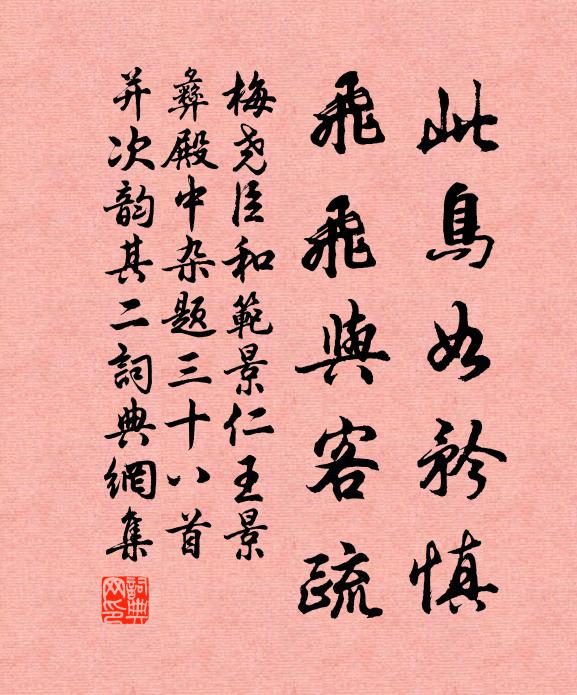 此鳥如矜慎
飛飛與客疏
梅尧臣和範景仁王景
彝殿中杂题三十八首
并次韵其二詞典網集
詞典
网印